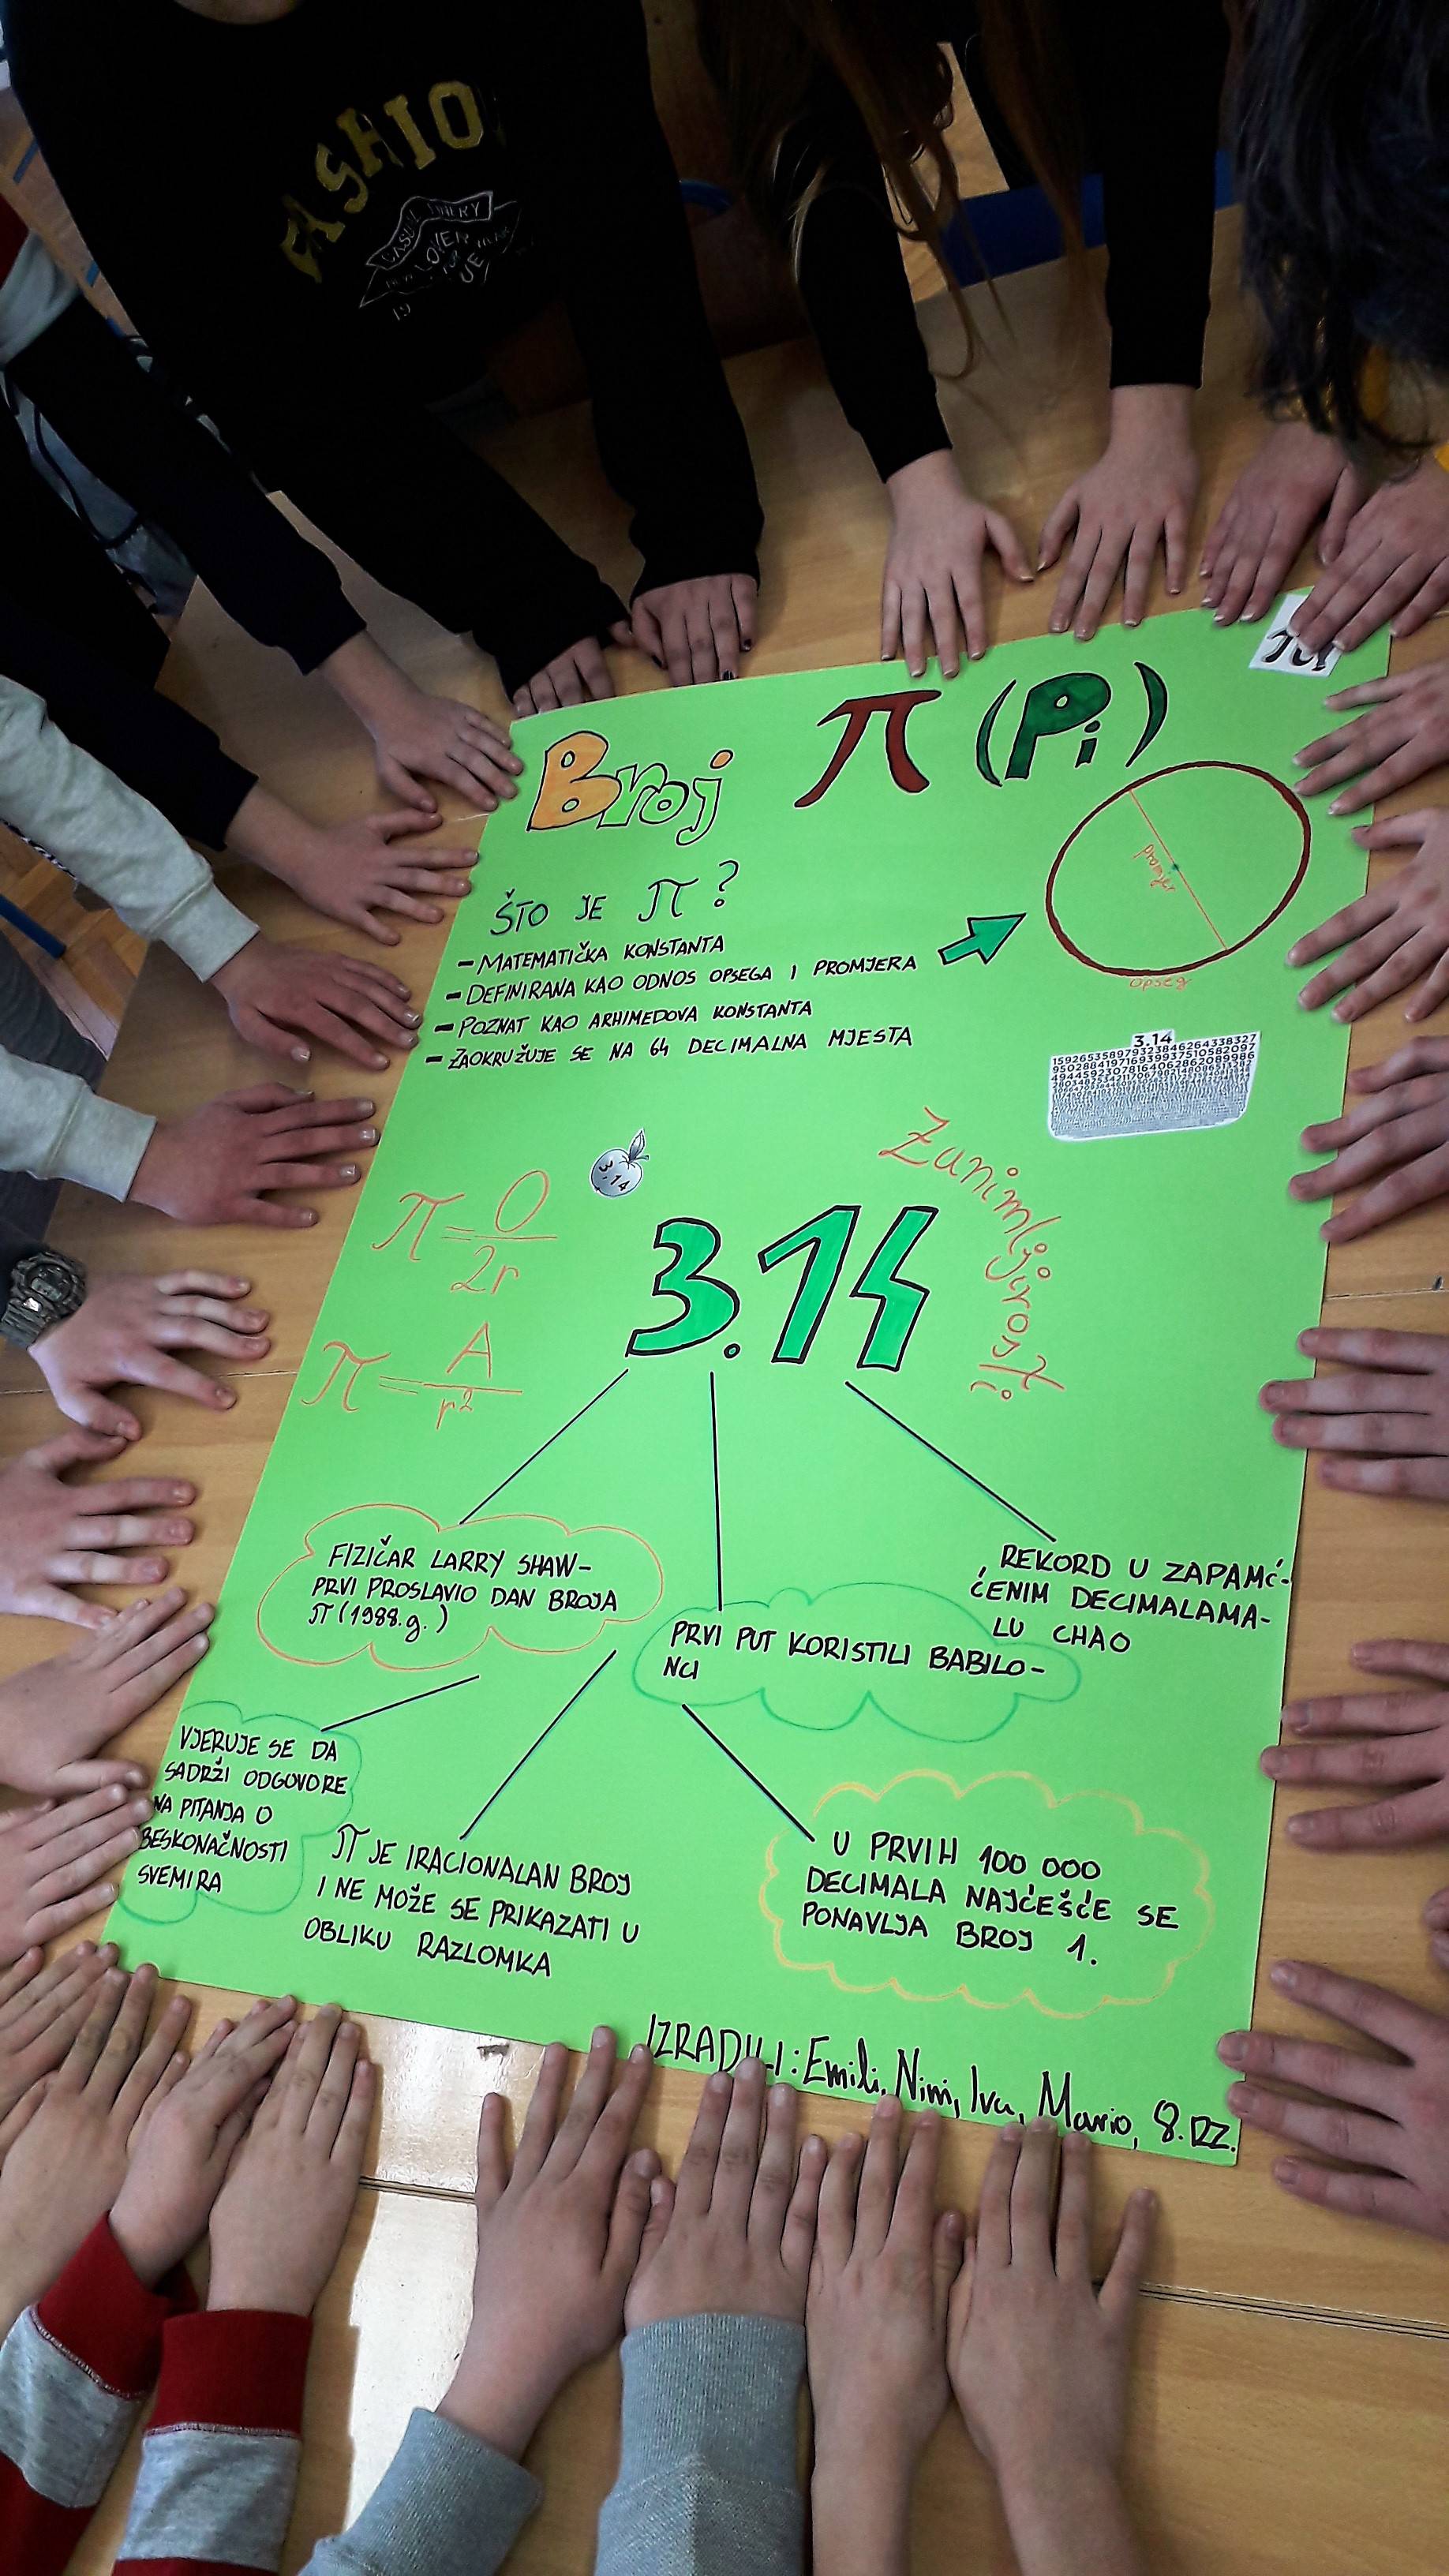 FASHIO
LOVER
Broj π (Pi)
ŠTO JE π?
- MATEMATIČKA KONSTANTA
- DEFINIRANA KAO ODNOS OPSEGA I PROMJERA
- POZNAT KAO ARHIMEDOVA KONSTANTA
- ZAOKRUŽUJE SE NA 64 DECIMALNA MJESTA
promjer
opseg
3.14
159265358979323846264338327
π = O / 2r
3.14
π = A / r²
3.14
Zanimljivosti
FIZIČAR LARRY SHAW-
PRVI PROSLAVIO DAN BROJA
π (1988.g.)
PRVI PUT KORISTILI BABILO-
NCI
REKORD U ZAPAMĆ-
ĆENIM DECIMALAMA-
LU CHAO
VJERUJE SE DA
SADRŽI ODGOVORE
NA PITANJA O
BESKONAČNOSTI
SVEMIRA
π JE IRACIONALAN BROJ
I NE MOŽE SE PRIKAZATI U
OBLIKU RAZLOMKA
U PRVIH 100 000
DECIMALA NAJĆEŠĆE SE
PONAVLJA BROJ 1.
IZRADILI: Emili, Nini, Iva, Mario, 8. RZ.